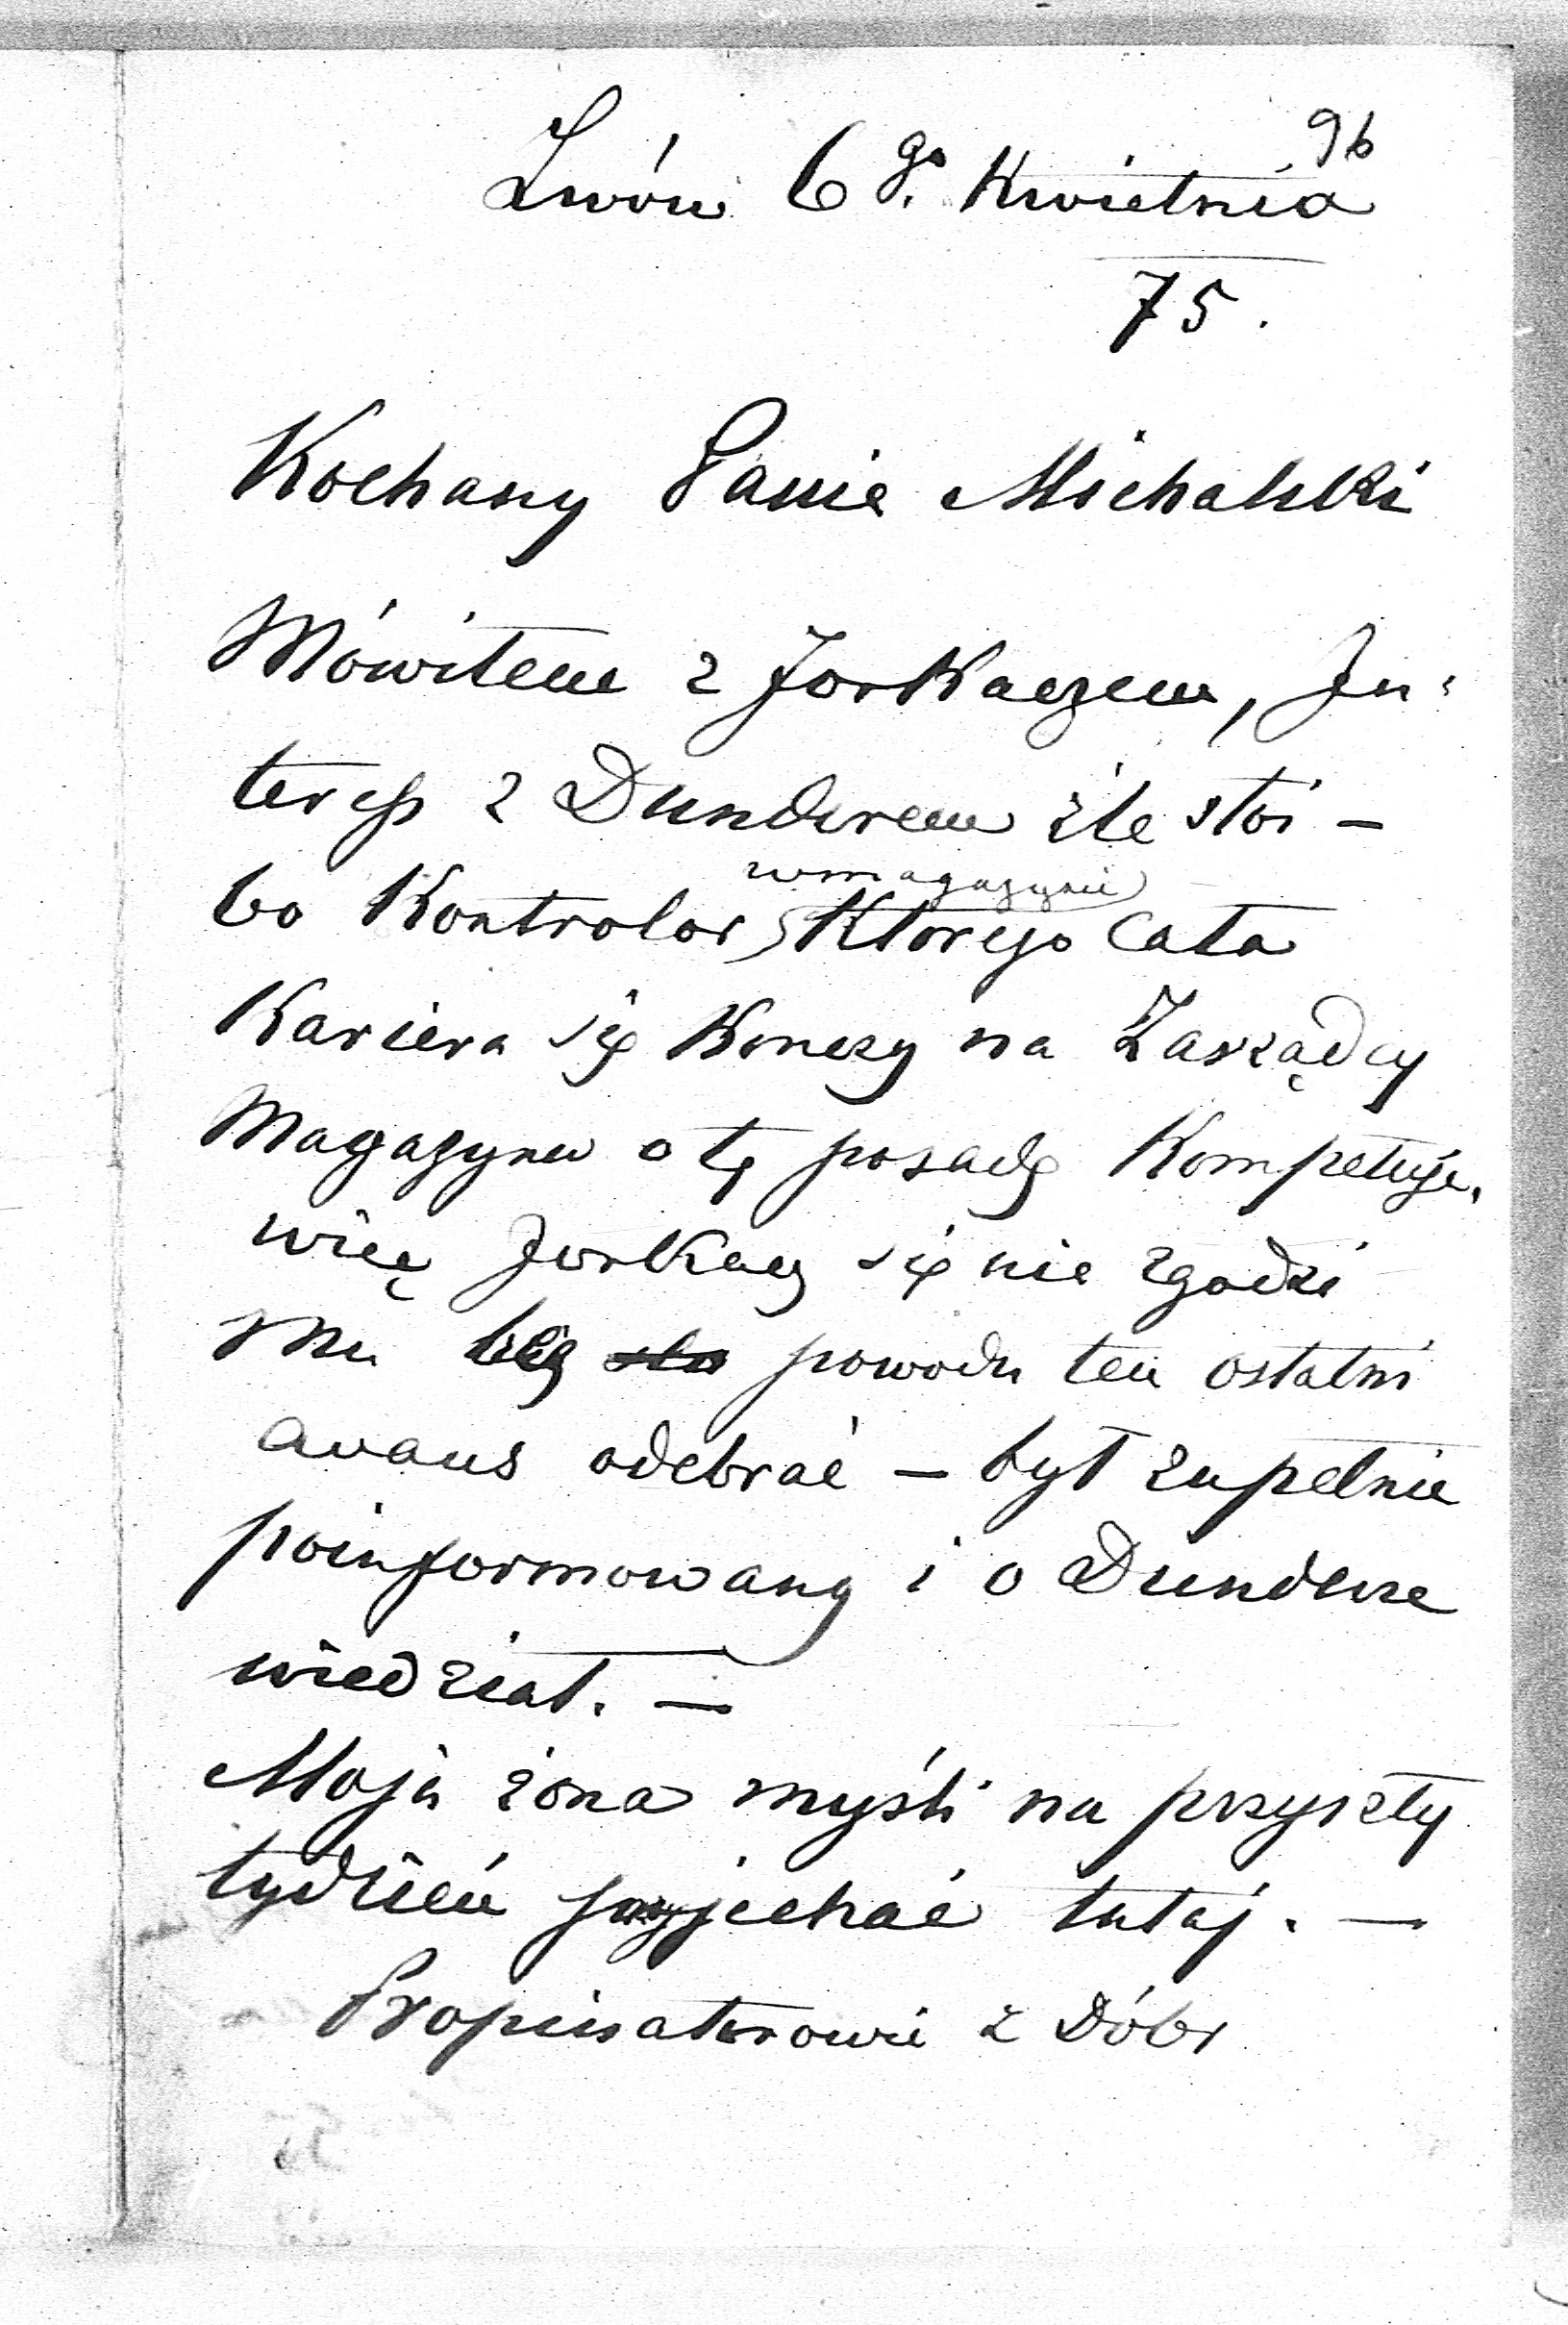 96
Lwów 6go. Kwietnia
75.
Kochany Panie Michalski
Mówiłem z Jorkaczem, In-
teress z Dunderem źle stoi –
w magazynie
bo Kontrolor, którego cała
Kariera się Konczy na Zarządcy
Magazynu o tę posadę Kompetuje,
więc Jorkacz się nie zgodzi
mu bez powodu ten ostatni
avans odebrać – był zupełnie
poinformowany i o Dunderze
wiedział. –
Moja żona myśli na przyszły
tydzień przyjechać tutaj. –
Propinatorowie z Dóbr